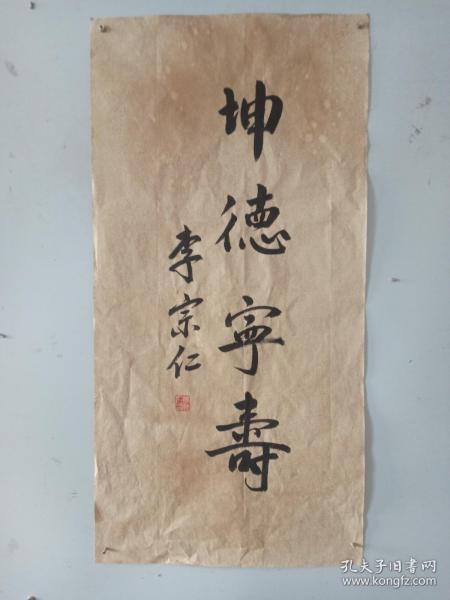 坤德寧壽
李宗仁
孔夫子旧书网
www.kongfz.com